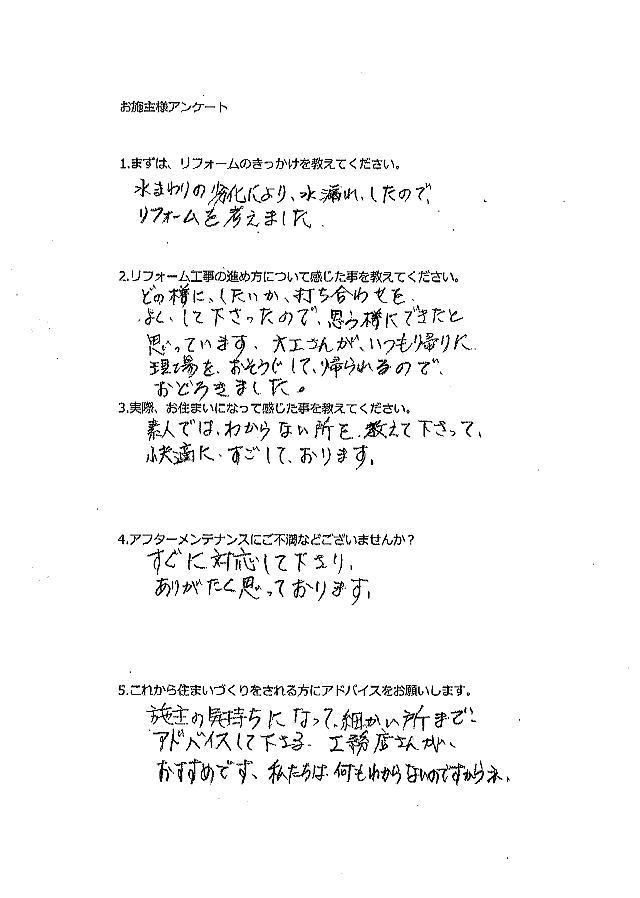 お施主様アンケート
1.まずは、リフォームのきっかけを教えてください。
水まわりの劣化により、水漏れ、したので、
リフォームを考えました
2.リフォーム工事の進め方について感じた事を教えてください。
どの様に、したいか、打ち合わせを、
よく、して下さったので、思う様にできたと
思っています、大工さんが、いつも帰りに
現場を、おそうじして、帰られるので、
おどろきました。
3.実際、お住まいになって感じた事を教えてください。
素人では、わからない所を、教えて下さって、
快適に、すごして、おります。
4.アフターメンテナンスにご不満などございませんか？
すぐに対応して下さり、
ありがたく思っております。
5.これから住まいづくりをされる方にアドバイスをお願いします。
施主の気持ちになって、細かい所まで
アドバイスして下さる、工務店さんが、
おすすめです、私たちは、何もわからないのですからネ、